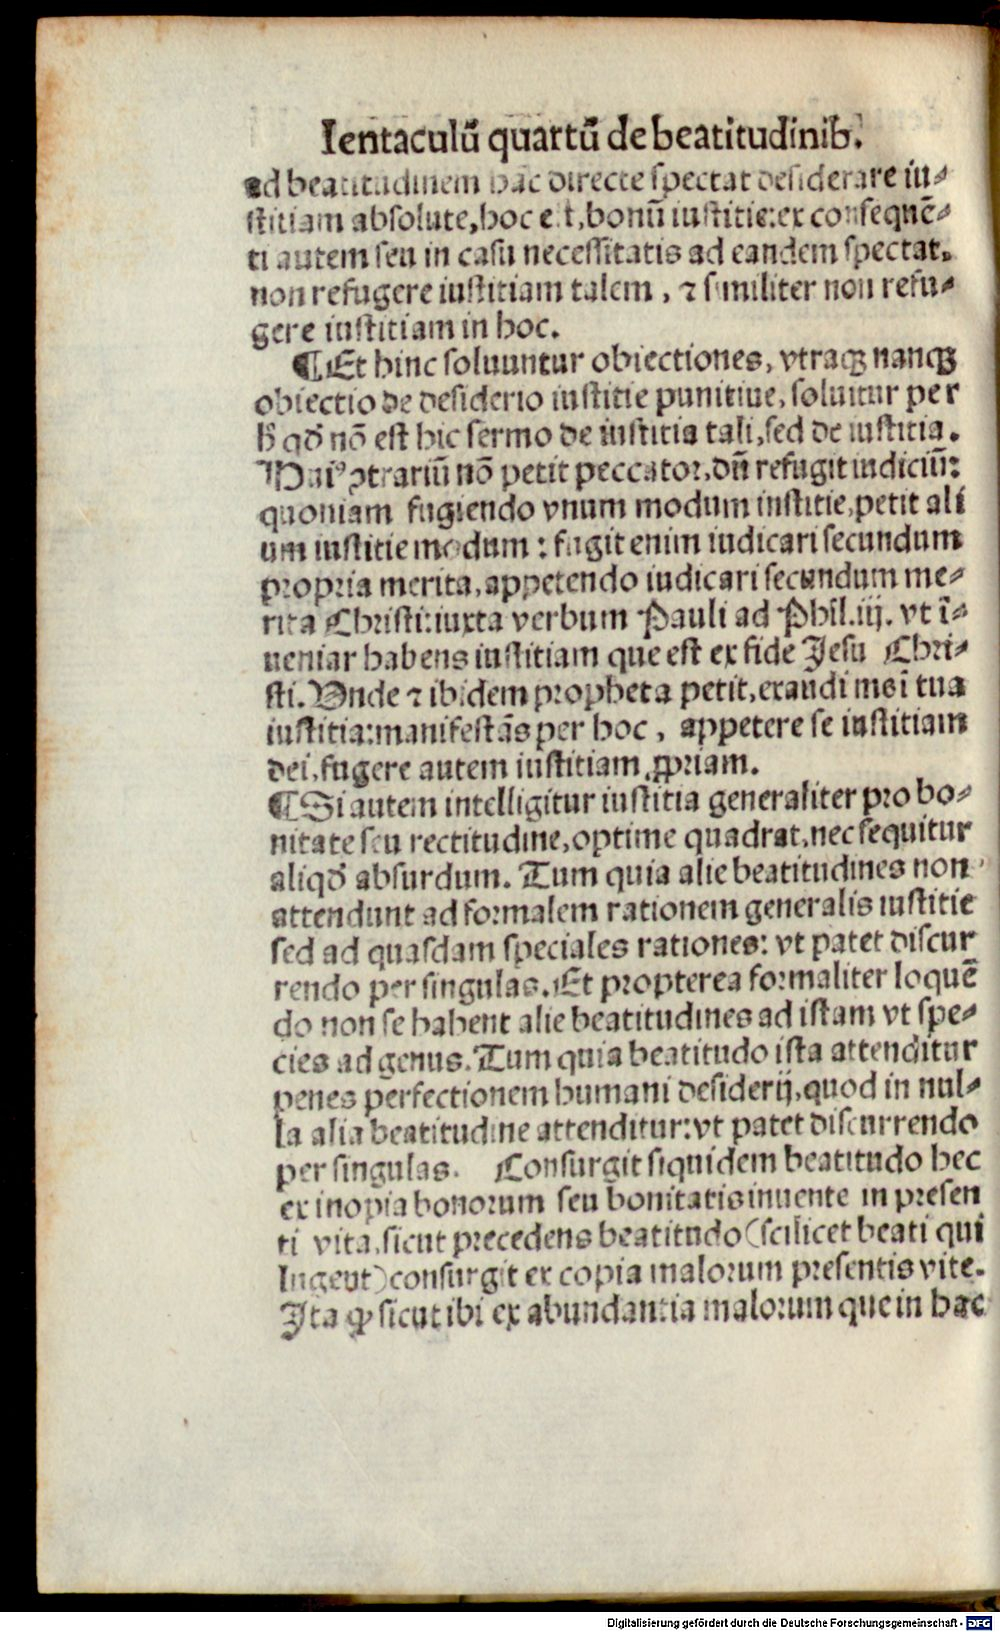 Ientaculū quartū de beatitudinib.
ad beatitudinem hac directe spectat desiderare iu-
stitiam absolute, hoc est, bonū iustitie: ex consequē-
ti autem seu in casu necessitatis ad eandem spectat.
non refugere iustitiam talem, ⁊ similiter non refu-
gere iustitiam in hoc.
¶ Et hinc soluuntur obiectiones, vtraqꝫ nanqꝫ
obiectio de desiderio iustitie punitiue, soluitur per
h̄ qđ nō est hic sermo de iustitia tali, sed de iustitia.
ꝯtrariū nō petit peccator, dū refugit iudiciū:
quoniam fugiendo vnum modum iustitie, petit ali
um iustitie modum: fugit enim iudicari secundum
propria merita, appetendo iudicari secundum me-
rita Christi: iuxta verbum Pauli ad Phil. iij. vt ī-
ueniar habens iustitiam que est ex fide Jesu Chri-
sti. Vnde ⁊ ibidem propheta petit, exaudi me ī tua
iustitia: manifestās per hoc, appetere se iustitiam
dei, fugere autem iustitiam ꝓpriam.
¶ Si autem intelligitur iustitia generaliter pro bo-
nitate seu rectitudine, optime quadrat, nec sequitur
aliqđ absurdum. Tum quia alie beatitudines non
attendunt ad formalem rationem generalis iustitie
sed ad quasdam speciales rationes: vt patet discur
rendo per singulas. Et propterea formaliter loquē
do non se habent alie beatitudines ad istam vt spe-
cies ad genus. Tum quia beatitudo ista attenditur
penes perfectionem humani desiderij, quod in nul-
la alia beatitudine attenditur: vt patet discurrendo
per singulas. Consurgit siquidem beatitudo hec
ex inopia bonorum seu bonitatis inuente in presen
ti vita, sicut precedens beatitudo (scilicet beati qui
lugent) consurgit ex copia malorum presentis vite.
Ita ꝙ sicut ibi ex abundantia malorum que in hac
Digitalisierung gefördert durch die Deutsche Forschungsgemeinschaft - DFG